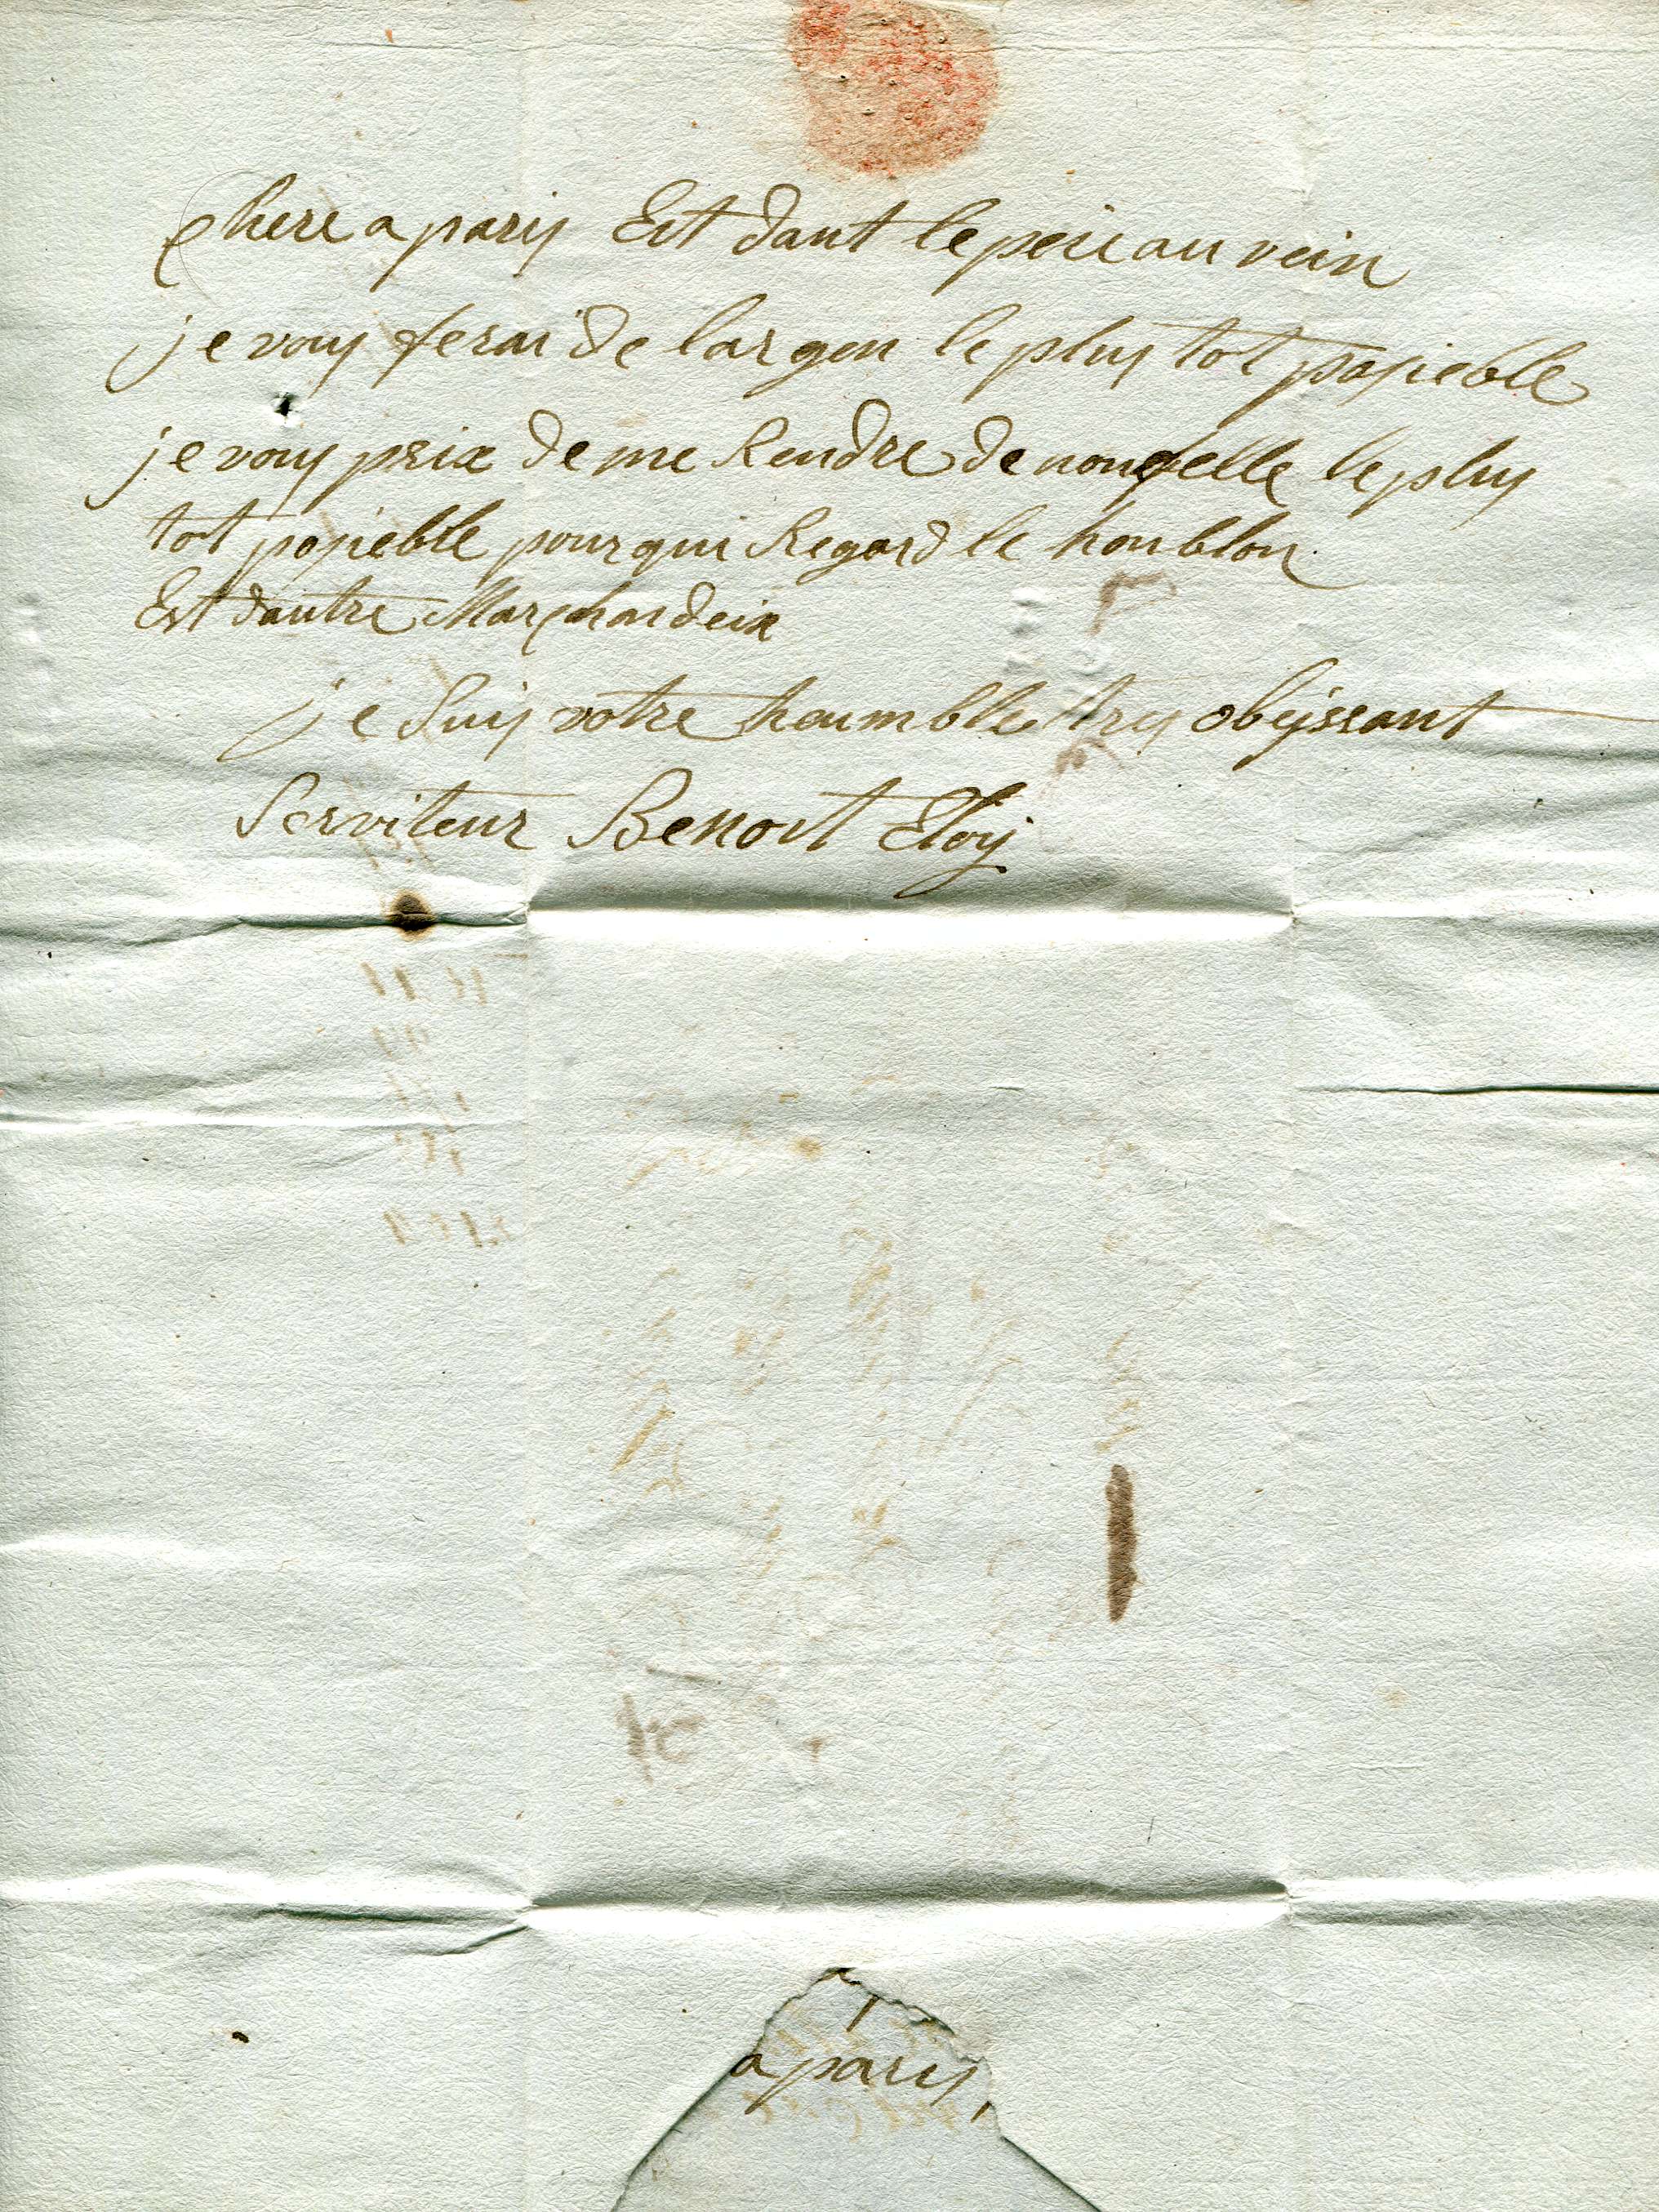 chere a parij Est dant le peii au vein
je vouj ferai de largen le pluj tot posieble
je vouj prix de me Rendre de nouvelle le pluj
tot posieble pour qui Regard le houblon
Est dautre Marchandeix
je Suij votre heumble trej obeijssant
Serviteur Benoit Eloij
a parij